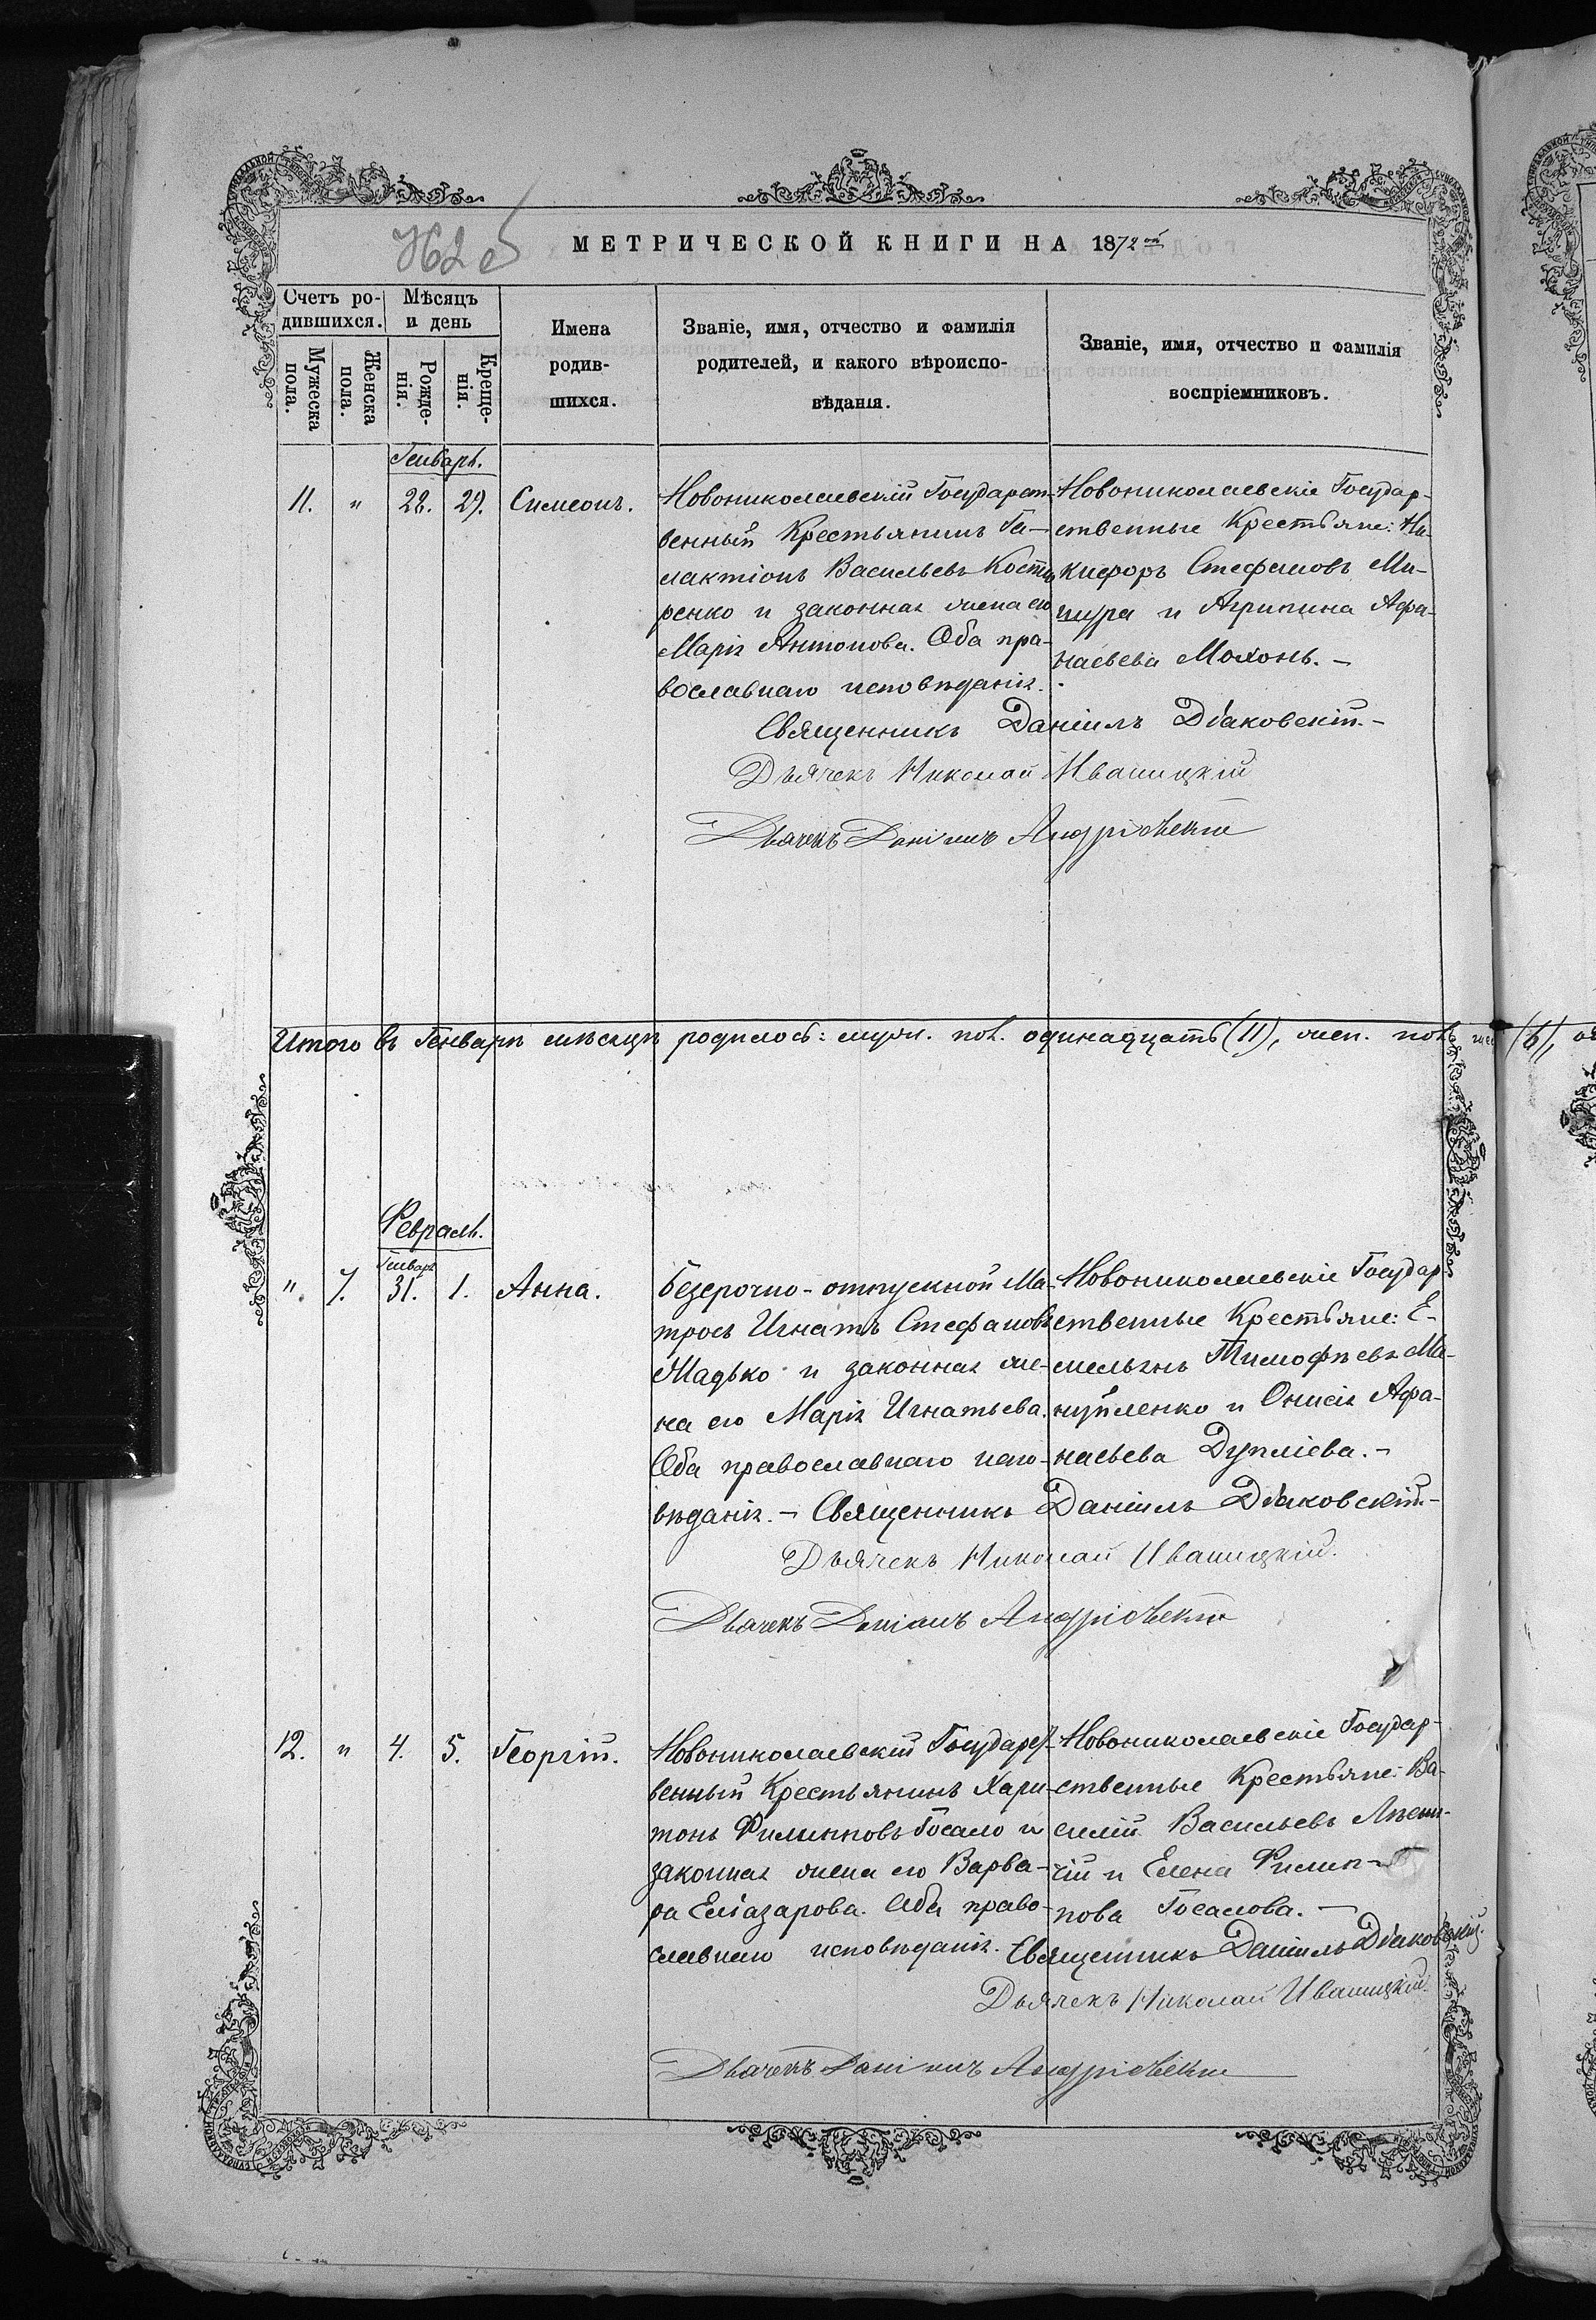 МЕТРИЧЕСКОЙ КНИГИ НА 1872ой
Счетъ ро-
дившихся.
Мѣсяцъ
и день
Мужеска
пола.
Женска
пола.
Рожде-
нія.
Креще-
нія.
Имена
родив-
шихся.
Званіе, имя, отчество и фамилія
родителей, и какого вѣроиспо-
вѣданія.
Званіе, имя, отчество и фамилія
воспріемниковъ.
Генварь.
11. " 28. 29. Симеонъ.
Новониколаевскій Государст-
венный Крестьянинъ Га-
лактіонъ Васильевъ Костю
ренко и законная жена его
Марія Антонова. Оба пра-
вославнаго исповѣданія.
Новониколаевскіе Государ-
ственные Крестьяне: Ни-
кифоръ Стефановъ Ми-
щура и Агрипина Афа-
насьева Мохонь. –
Священникъ Даніилъ Дьяковскій. –
Дьячекъ Николай Иваницкій
Дьячекъ Даніилъ Андріевскій
Итого въ Генварѣ мѣсяцѣ родилось: муж. пол. одинадцать (11), жен. пол. (6),
Февраль.
Генвар.
" 7. 31. 1. Анна.
Безсрочно-отпускной Ма-
тросъ Игнатъ Стефановъ
Мадѣко и законная же-
на его Марія Игнатьева.
Оба православнаго испо-
вѣданія. –
Новониколаевскіе Государ-
ственные Крестьяне: Е-
мельянъ Тимофѣевъ Ма-
нуйленко и Онисія Афа-
насьева Дупліева. –
Священникъ Даніилъ Дьяковскій. –
Дьячекъ Николай Иваницкій.
Дьячекъ Даніилъ Андріевскій
12. " 4. 5. Георгій.
Новониколаевскій Государст-
венный Крестьянинъ Хари-
тонъ Филипповъ Госало и
законная жена его Варва-
ра Еліазарова. Оба право-
славнаго исповѣданія.
Новониколаевскіе Государ-
ственные Крестьяне: Ва-
силій Васильевъ
и Елена Филип-
пова Госалова. –
Священникъ Даніилъ Дьяковскій.
Дьячекъ Николай Иваницкій.
Дьячекъ Даніилъ Андріевскій